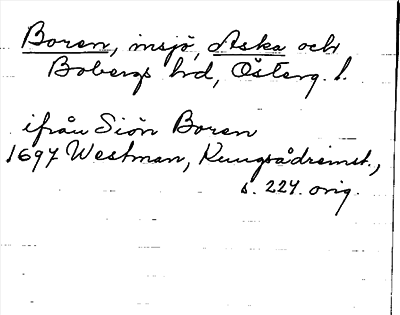 Boren, insjö, Aska och
Bobergs hrd, Österg. l.
ifrån Siön Boren
1697 Westman, Kungsådremst.,
s. 224. orig.